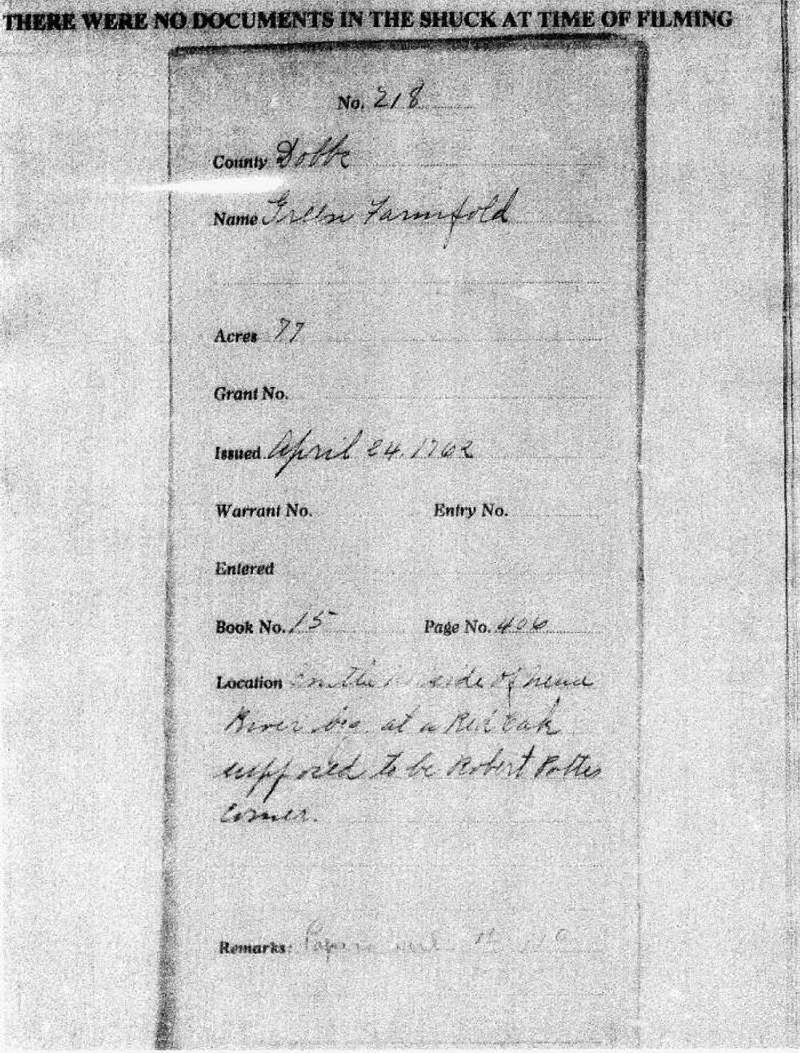 THERE WERE NO DOCUMENTS IN THE SHUCK AT TIME OF FILMING
No. 218
County Dobbs
Name Green Farmfold
Acres 77
Grant No.
Issued April 24, 1762
Warrant No. Entry No.
Entered
Book No. 15 Page No. 406
Location On the side of Neuse
River beg. at a Red Oak
supposed to be Robert Potts
Corner.
Remarks: